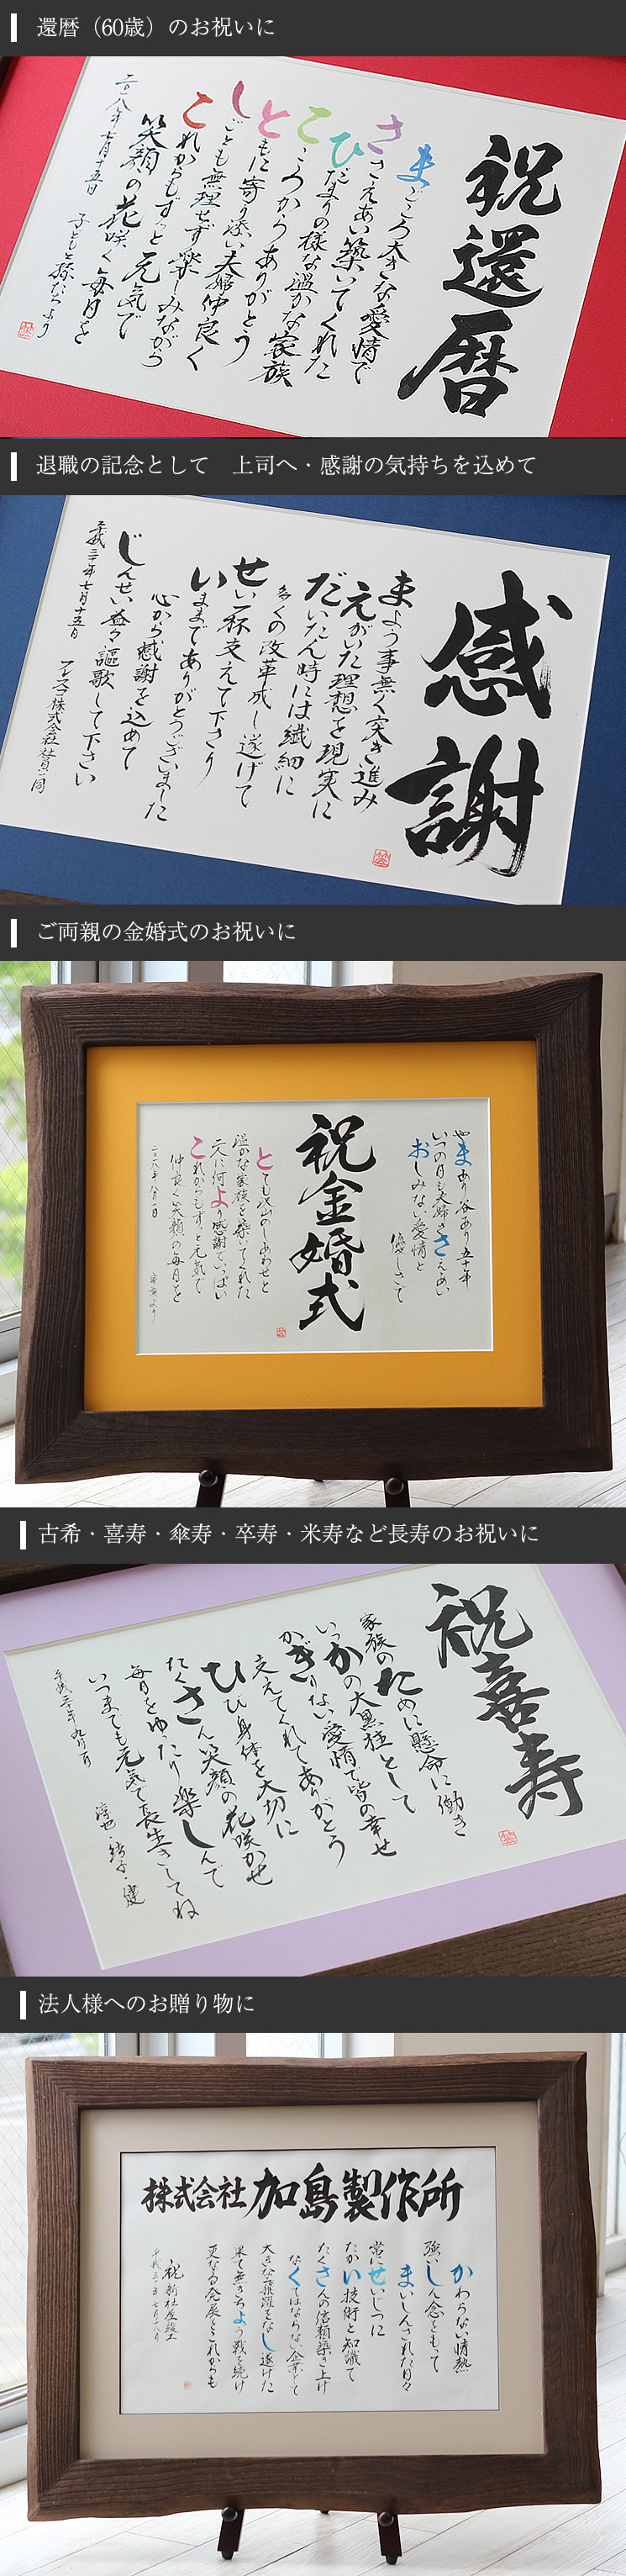 還暦（60歳）のお祝いに
祝還暦
まごころ大きな愛情で
ささえあい築いてくれた
ひだまりの様な温かな家族
こころからありがとう
ともに寄り添い夫婦仲良く
しごとも無理せず楽しみながら
これからもずっと元気で
笑顔の花咲く毎日を
二〇一八年七月十五日　子ども孫たちより
退職の記念として　上司へ・感謝の気持ちを込めて
感謝
まよう事無く突き進み
えがいた理想を現実に
だいたん時には繊細に
多くの改革成し遂げて
せい一杯支えて下さり
いままでありがとうございました
心から感謝を込めて
じんせい益々謳歌して下さい
平成三十年七月十五日　フレスコ株式会社社員一同
ご両親の金婚式のお祝いに
やまあり谷あり五十年
いつの日も夫婦ささえあい
おしみない愛情と
優しさで
祝金婚式
とても沢山のしあわせと
温かな家族を築いてくれた
二人に何より感謝でいっぱい
これからもずっと元気で
仲良く笑顔の毎日を
古希・喜寿・傘寿・卒寿・米寿など長寿のお祝いに
祝喜寿
家族のために懸命に働き
いっかの大黒柱として
かぎりない愛情で皆の幸せ
支えてくれてありがとう
ひび身体を大切に
たくさん笑顔の花咲かせ
毎日をゆったり楽しんで
いつまでも元気で長生きしてね
法人様へのお贈り物に
株式会社加島製作所
かわらない情熱
強いしん念をもって
まいしんされた日々
常にせいじつに
たかい技術と知識で
たくさんの信頼築き上げ
なくてはならない企業として
大きな飛躍をなし遂げた
果て無きちょう戦を続け
更なる発展をこれからも
祝 新社屋竣工